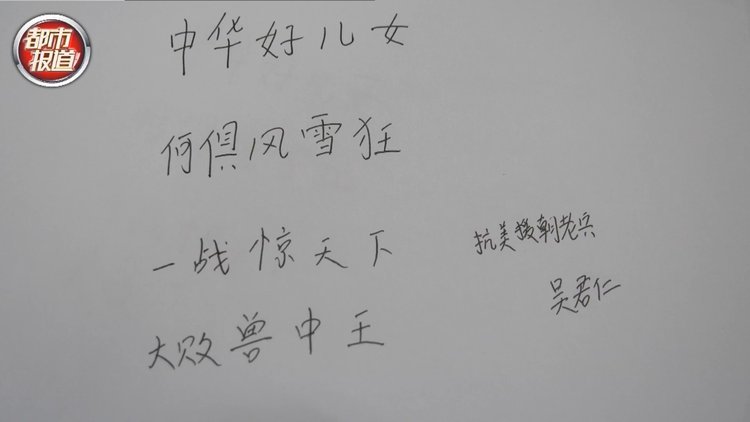 都市
报道
中华好儿女
何俱风雪狂
一战惊天下
大败兽中王
抗美援朝老兵
吴君仁